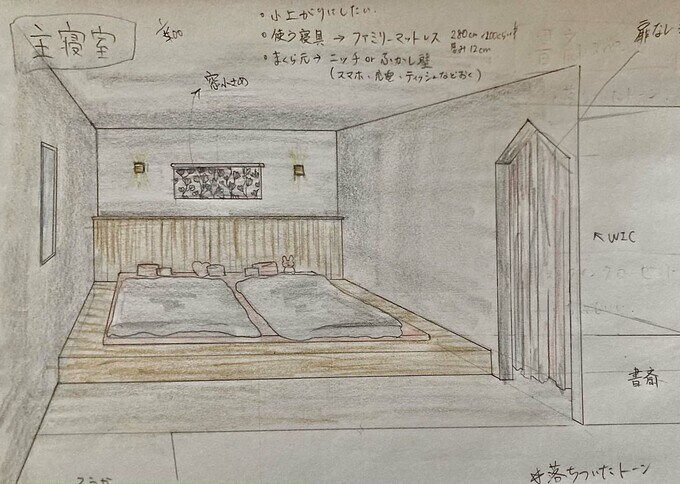 主寝室
・小上がりにしたい.
・使う寝具 → ファミリーマットレス 280cm×200cm
厚み12cm
・まくら元 → ニッチ or ふかし壁
(スマホ・充電・ティッシュなどおく)
窓小さめ
扉なし
↖WIC
書斎
落ちついたトーン